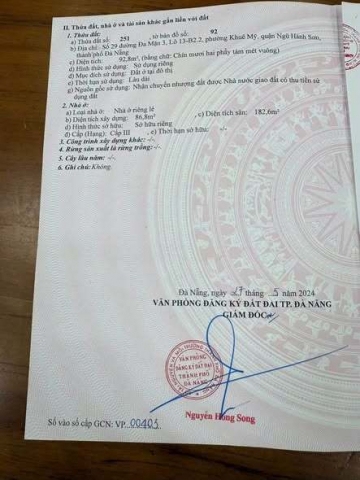 II. Thửa đất, nhà ở và tài sản khác gắn liền với đất
1. Thửa đất:
a) Thửa đất số: 251 b) tờ bản đồ số: 92
b) Địa chỉ: Số 29 đường Đa Mặn 3, Lô 13-B2.2, phường Khuê Mỹ, quận Ngũ Hành Sơn,
thành phố Đà Nẵng
c) Diện tích: 92,8m², (bằng chữ: Chín mươi hai phẩy tám mét vuông)
d) Hình thức sử dụng: Sử dụng riêng
đ) Mục đích sử dụng: Đất ở tại đô thị
e) Thời hạn sử dụng: Lâu dài
g) Nguồn gốc sử dụng: Nhận chuyển nhượng đất được Nhà nước giao đất có thu tiền sử
dụng đất
2. Nhà ở:
a) Loại nhà ở: Nhà ở riêng lẻ
b) Diện tích xây dựng: 86,8m² c) Diện tích sàn: 182,6m²
d) Hình thức sở hữu: Sở hữu riêng
đ) Cấp (Hạng): Cấp III e) Thời hạn sở hữu: -/-
3. Công trình xây dựng khác: -/-
4. Rừng sản xuất là rừng trồng: -/-
5. Cây lâu năm: -/-
6. Ghi chú: Không.
Đà Nẵng, ngày 27 tháng 5 năm 2024
VĂN PHÒNG ĐĂNG KÝ ĐẤT ĐAI TP. ĐÀ NẴNG
GIÁM ĐỐC
VĂN PHÒNG
ĐĂNG KÝ ĐẤT ĐAI
THÀNH PHỐ
ĐÀ NẴNG
Nguyễn Hồng Song
Số vào sổ cấp GCN: VP 00405